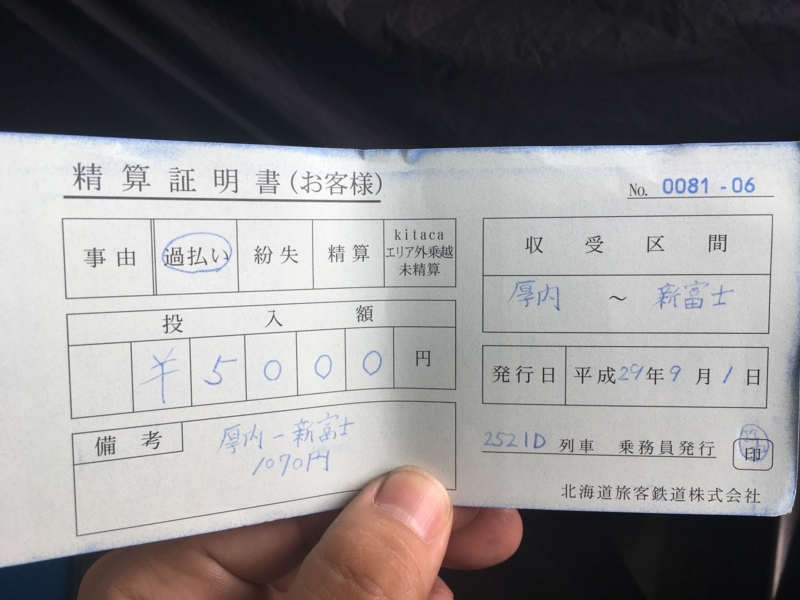 精算証明書(お客様)
No. 0081-06
事由 過払い 紛失 精算 kitacaエリア外乗越未精算
収受区間
厚内 ～ 新富士
投入額
¥5000円
発行日 平成29年9月1日
備考
厚内－新富士
1070円
2521D 列車 乗務員発行 印
北海道旅客鉄道株式会社